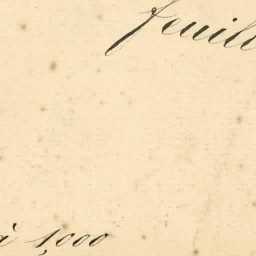 feuill
à 1,000